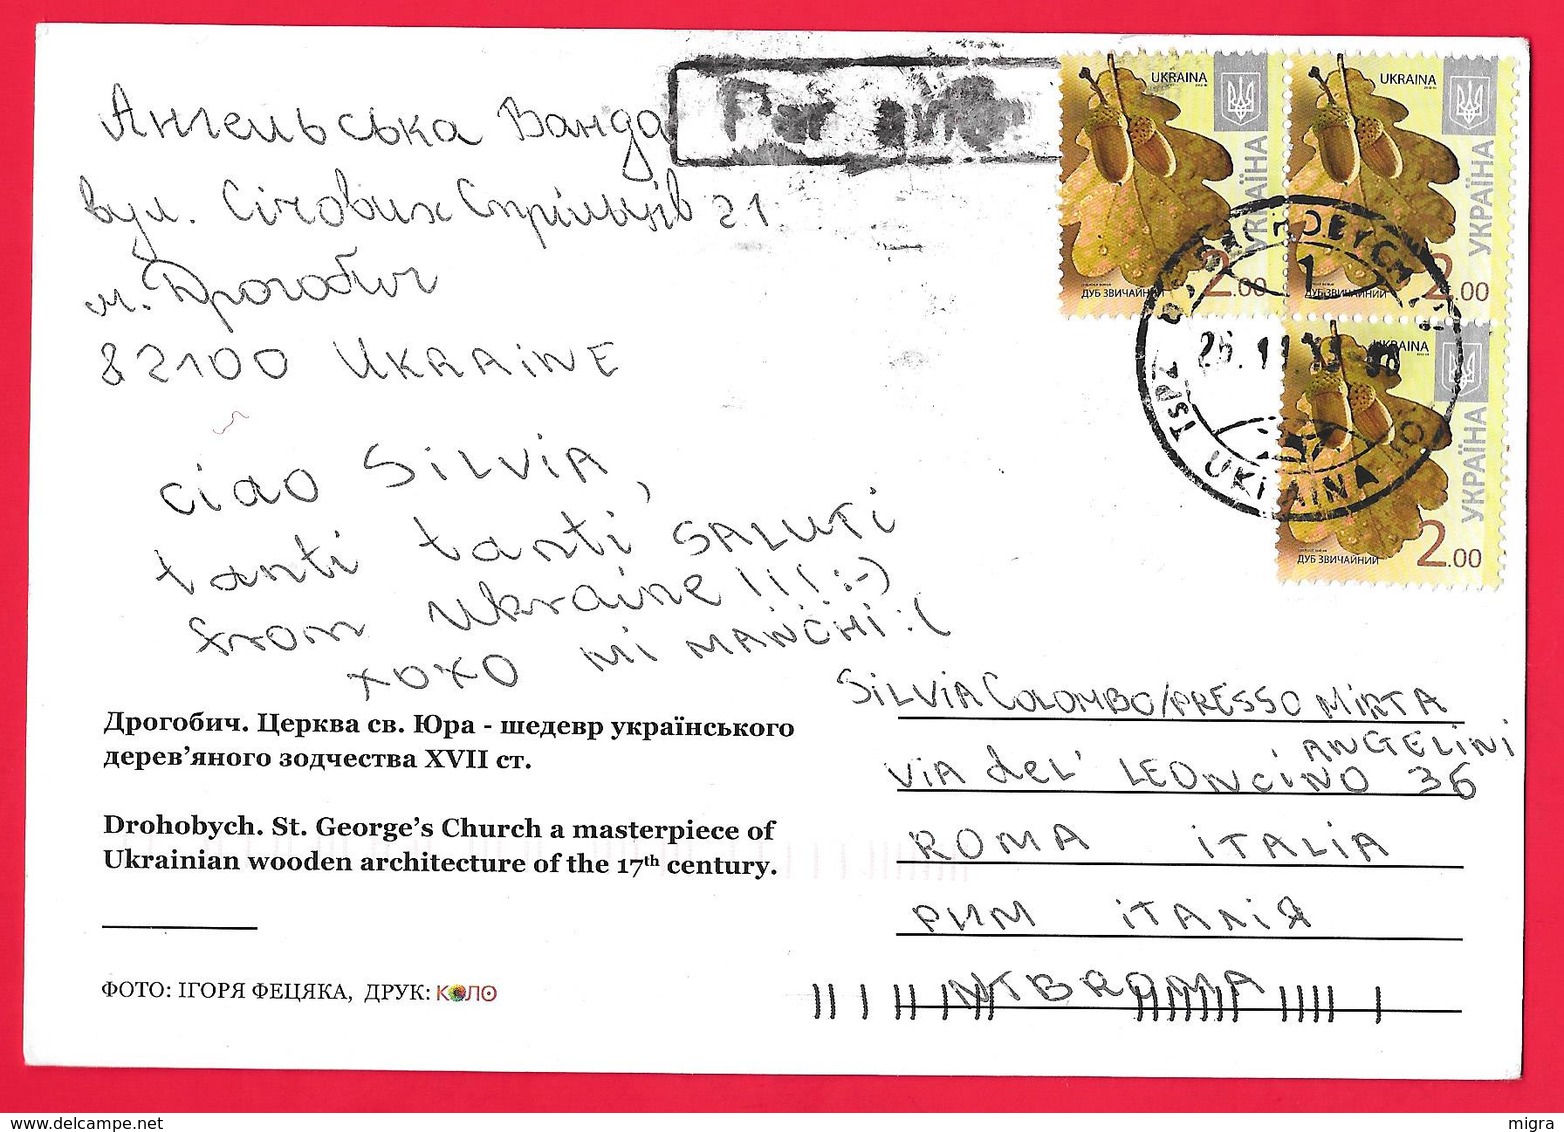 Ангельська Ванда
вул. Січових Стрільців 21
м. Дрогобич
82100 UKRAINE
Par avion
UKRAINA
УКРАЇНА
ДУБ ЗВИЧАЙНИЙ
2.00
UKRAINA
УКРАЇНА
ДУБ ЗВИЧАЙНИЙ
2.00
UKRAINA
УКРАЇНА
ДУБ ЗВИЧАЙНИЙ
2.00
DROHOBYCH
1
UKRAINA
ciao SiLViA,
tanti tanti SALUTi
from Ukraine!!! :-)
xoxo Mi MANCHI :(
Дрогобич. Церква св. Юра - шедевр українського
дерев’яного зодчества XVII ст.
Drohobych. St. George’s Church a masterpiece of
Ukrainian wooden architecture of the 17th century.
ФОТО: ІГОРЯ ФЕЦЯКА, ДРУК: КОЛО
SiLViA COLOMBO/PRESSO MiRTA
ANGELiNi
ViA del' LEONCiNO 36
ROMA iTALiA
РИМ ІТАЛІЯ
www.delcampe.net
migra